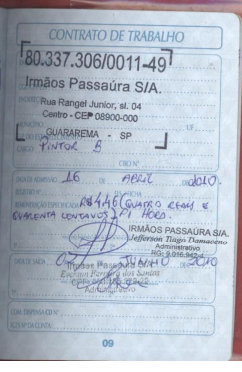 CONTRATO DE TRABALHO
80.337.306/0011-49
Irmãos Passaúra S/A.
Rua Rangel Junior, sl. 04
Centro - CEP 08900-000
GUARAREMA - SP
CARGO PINTOR B
CBO Nº
DATA DE ADMISSÃO 16 DE ABRIL DE 2010.
REGISTRO Nº FLS./FICHA
REMUNERAÇÃO ESPECIFICADA R$4,46 (QUATRO REAIS E
QUARENTA CENTAVOS) P/ HORA.
IRMÃOS PASSAÚRA S/A.
Jefferson Tiago Damaceno
Administrativo
RG: 9.016.942-4
DATA DE SAÍDA DE JUNHO DE 2010
Irmãos Passaúra S/A
Ferreira dos Santos
Administrativo
COM. DISPENSA CD Nº
FGTS Nº DA CONTA
09